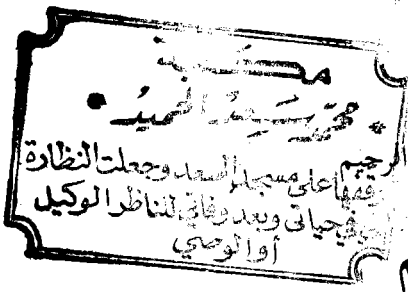 مكتبة
محمد سعيد الحميد
الرحيم
وقفها على مسجد السعد وجعلت النظارة
في حياتي وبعد وفاتي للناظر الوكيل
أو الوصي